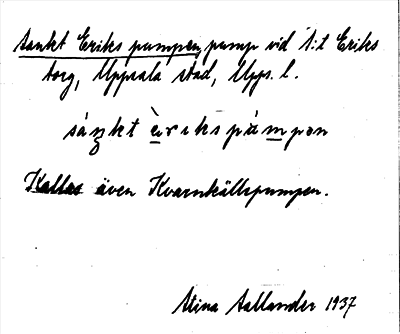 Sankt Eriks pumpen, pump vid S:t Eriks
torg, Uppsala stad, Upps. l.
sáŋkt è̱rikspùm̱pən
Kallas även Kvarnkällspumpen.
Stina Sallander 1937